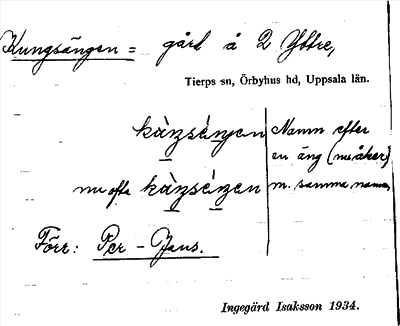 Kungsängen = gård å 2 Yttre,
Tierps sn, Örbyhus hd, Uppsala län.
kàŋsèŋen Namn efter
en äng (nu åker)
nu ofta kàŋséŋen m. samma namn.
Förr: Per-Jans.
Ingegärd Isaksson 1934.